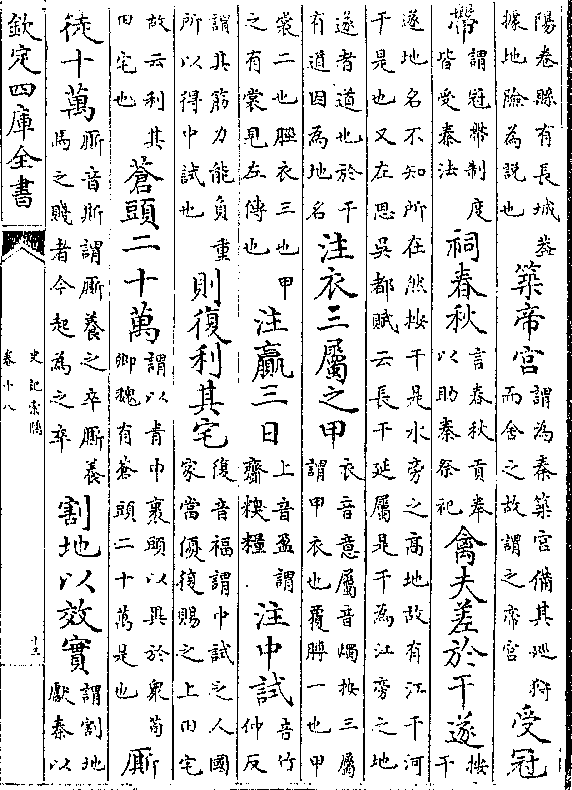 陽卷縣有長城葢據地險為說也築帝宫謂為秦築宫備其廵狩而舍之故謂之帝宫受冠
帶謂冠帶制度皆受秦法祠春秋言春秋貢奉以助秦祭祀禽夫差於干遂按干
遂地名不知所在然按干是水旁之髙地故有江干河干是也又左思吳都賦云長干延屬是干為江旁之地
遂者道也於干有道因為地名注衣三屬之甲衣音意屬音燭按三屬謂甲衣也覆膊一也甲
裳二也脛衣三也甲之有裳見左傳也注贏三日上音盈謂齎糗糧注中試音竹仲反
謂其筋力能負重所以得中試也則復利其宅復音福謂中試之人國家當優復賜之上田宅
故云利其田宅也蒼頭二十萬謂以青巾裹頭以異於衆荀卿魏有蒼頭二十萬是也厮
徒十萬厮音斯謂厮養之卒厮養馬之賤者今起為之卒割地以效實謂割地獻秦以
欽定四庫全書
史記索隱
卷十八
十三